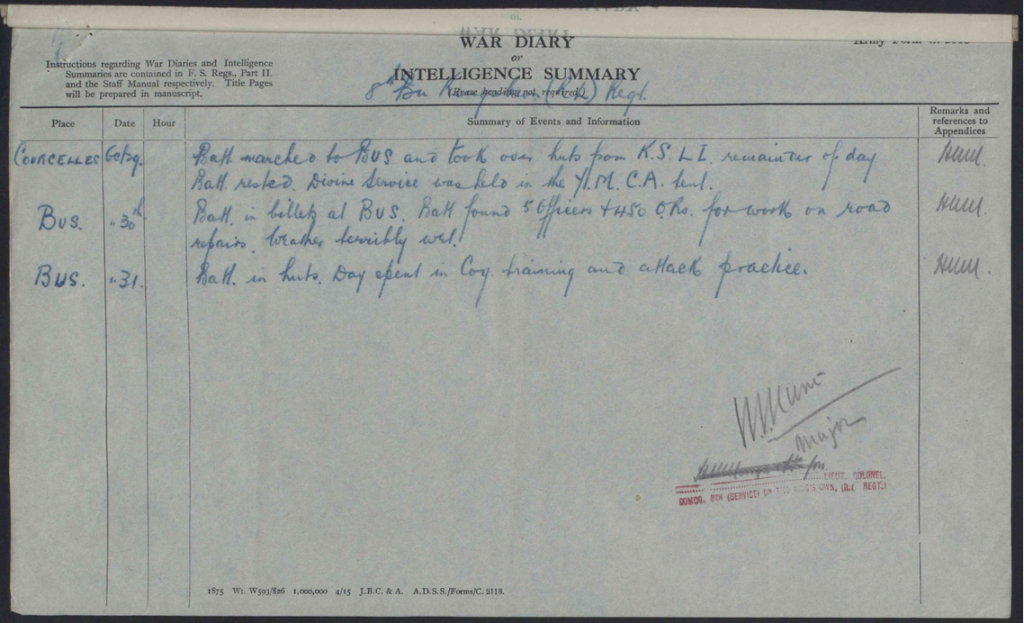 WAR DIARY
or
INTELLIGENCE SUMMARY
(Erase heading not required.)
Instructions regarding War Diaries and Intelligence
Summaries are contained in F. S. Regs., Part II.
and the Staff Manual respectively. Title Pages
will be prepared in manuscript.
8th Bn (R.L.) Regt.
Place Date Hour Summary of Events and Information Remarks and
references to
Appendices
COURCELLES Oct 29. Batt. marched to BUS and took over huts from K.S.L.I. remainder of day
Batt. rested. Divine Service was held in the Y.M.C.A. tent.
BUS. " 30th Batt. in billets at BUS. Batt found 5 Officers + 450 O.Rs. for work on road
repairs. Weather terribly wet!
BUS. " 31. Batt. in huts. Day spent in Coy training and attack practice.
Major
for
LIEUT. COLONEL.
COMDG. 8TH (SERVICE) BN THE KING'S OWN, (R.L. REGT.)
1875 Wt. W593/826 1,000,000 4/15 J.B.C. & A. A.D.S.S./Forms/C. 2118.